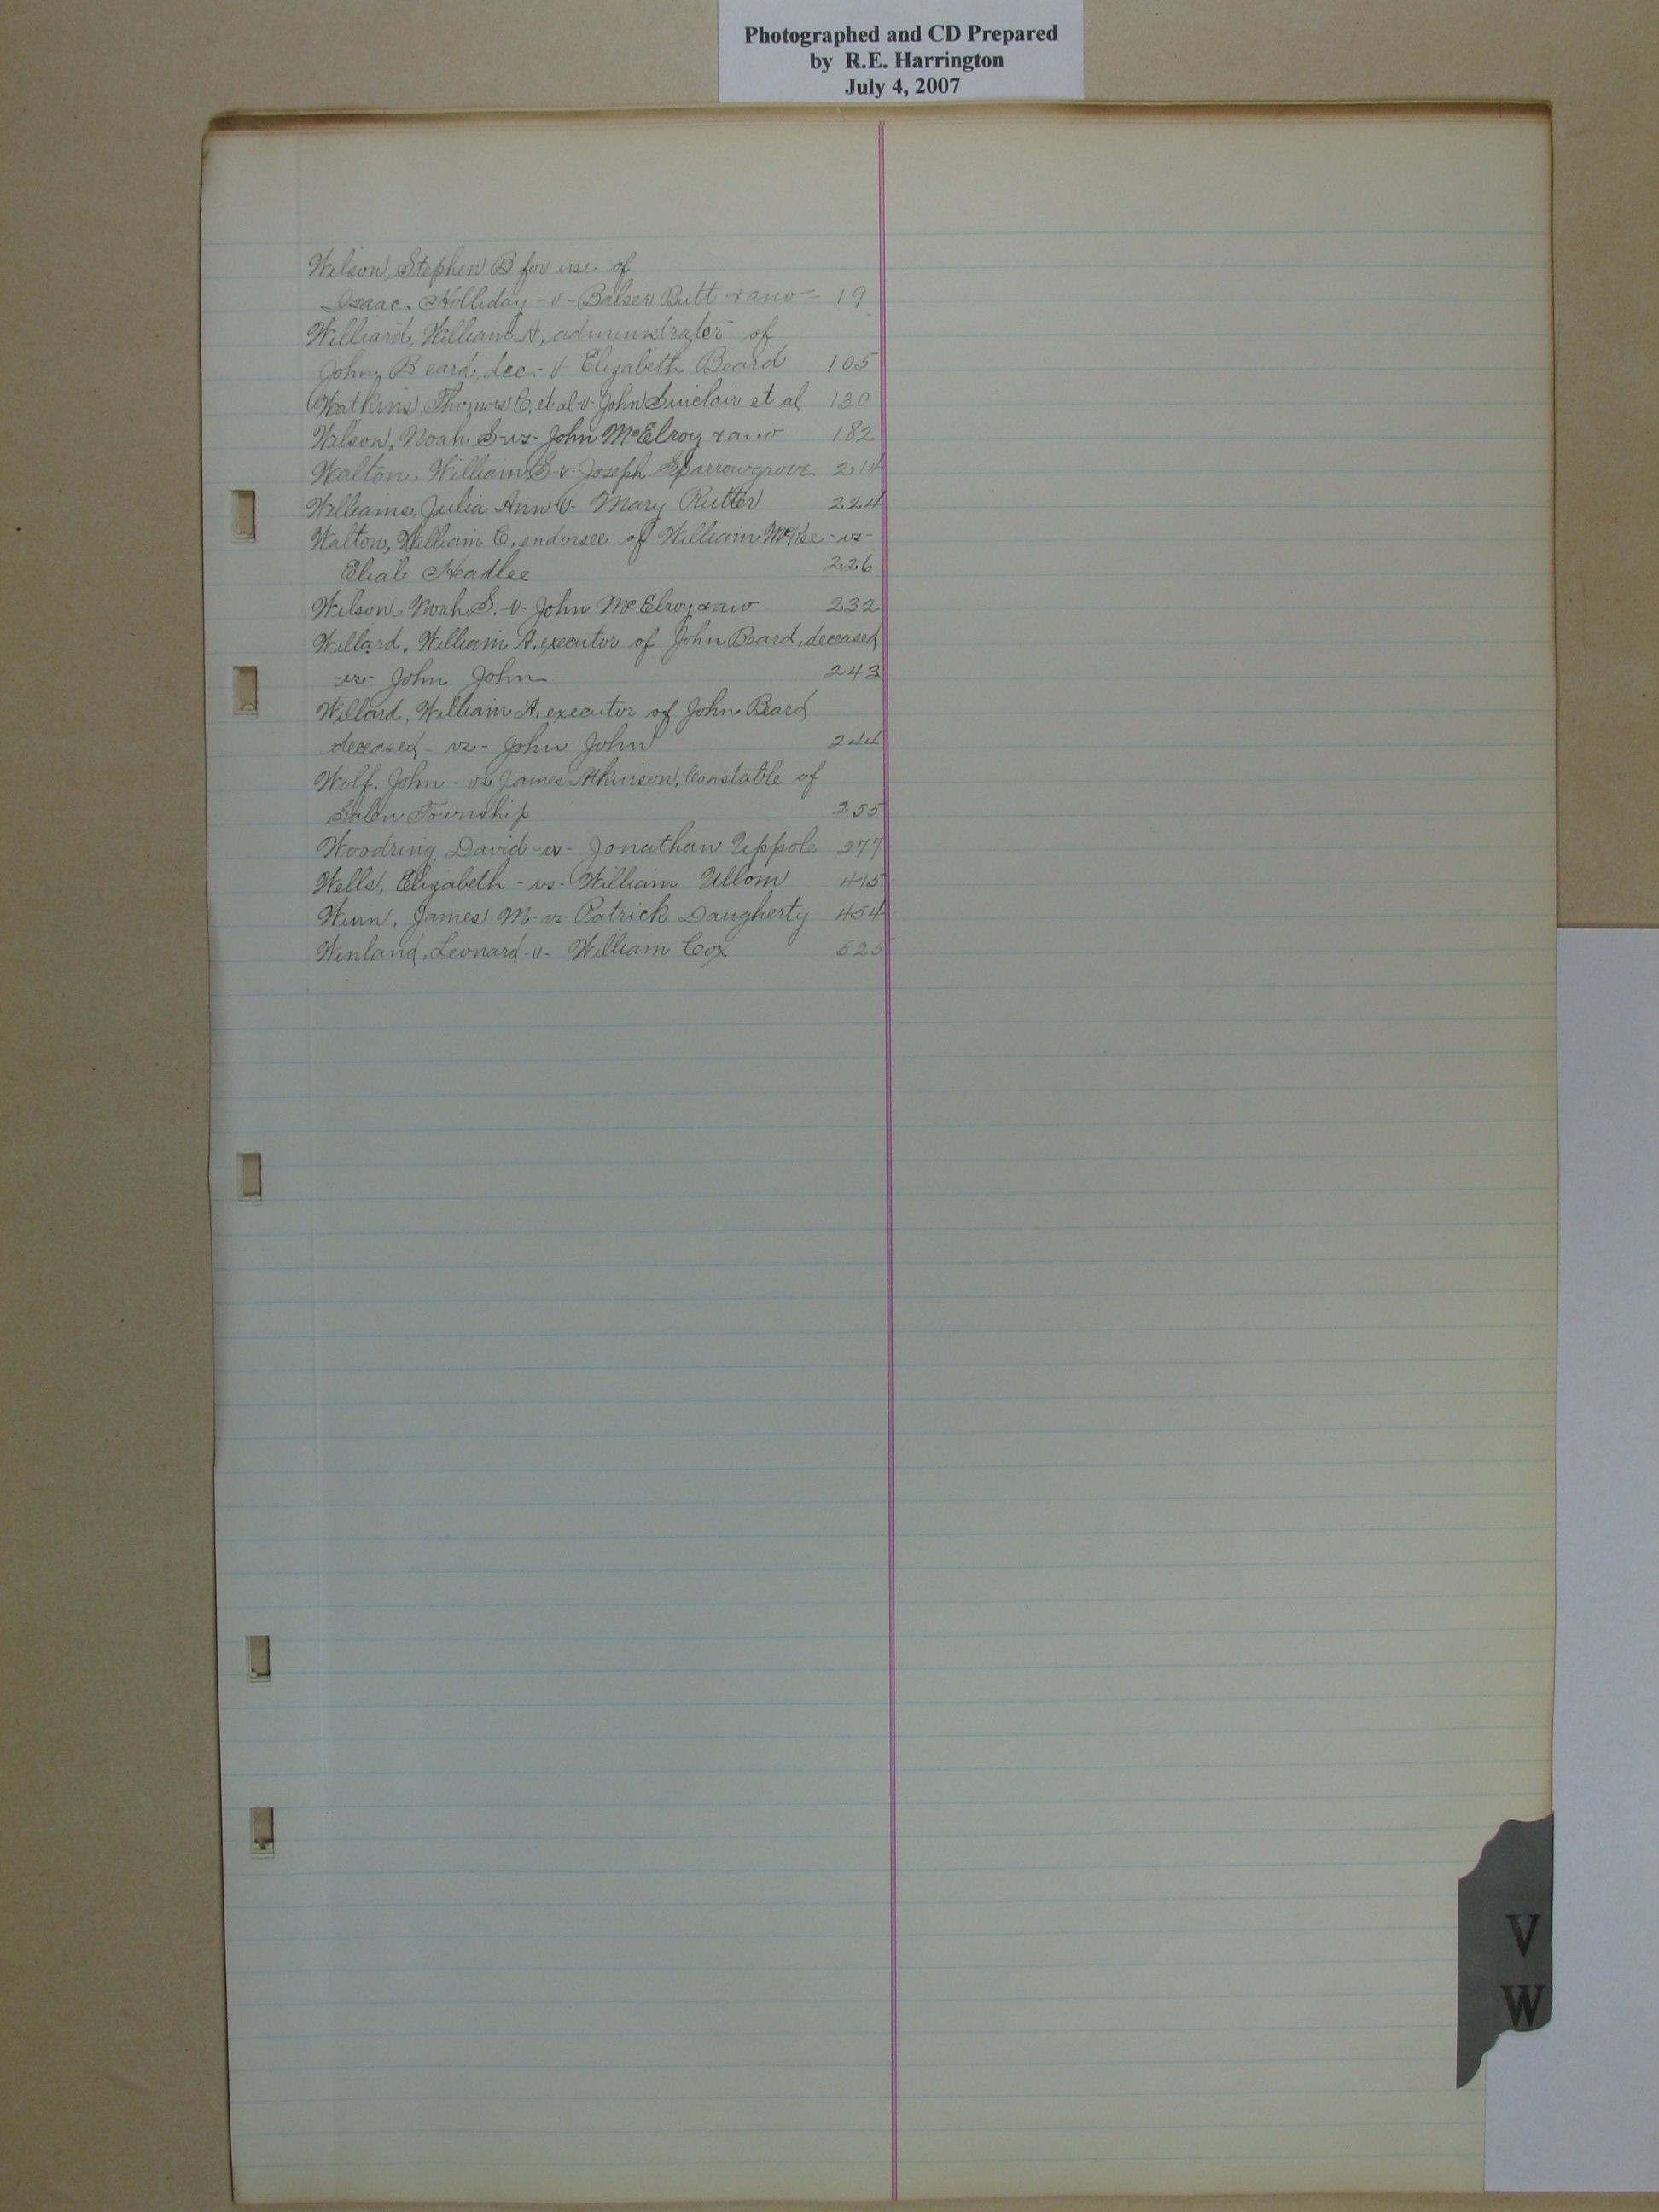 Photographed and CD Prepared
by R.E. Harrington
July 4, 2007
Wilson, Stephen B for use of
Isaac Holliday - v - Balser Butt & ano - 19
Williard, William A, administrater of
John Beard, dec. - v - Elizabeth Beard 105
Watkins, Thomas C, et al - v - John Sinclair et al 130
Wilson, Noah S - vs - John McElroy & ano 182
Walton, William S - v - Joseph Sparrowgrove 214
Williams, Julia Ann - v - Mary Rutter 224
Walton, William C, endorsee of William McKee - vs -
Eliab Headlee 226
Wilson, Noah S. - v - John McElroy & ano 232
Willard, William A. executor of John Beard, deceased
- vs - John John 243
Willard, William A, executor of John Beard
deceased - vs - John John 244
Wolf, John - vs James Atkinson, Constable of
Salem Township 255
Woodring, David - vs - Jonathan Uppole 277
Wells, Elizabeth - vs - William Ullom 415
Winn, James M - vs - Patrick Daugherty 454
Winland, Leonard - v - William Cox 525
V
W